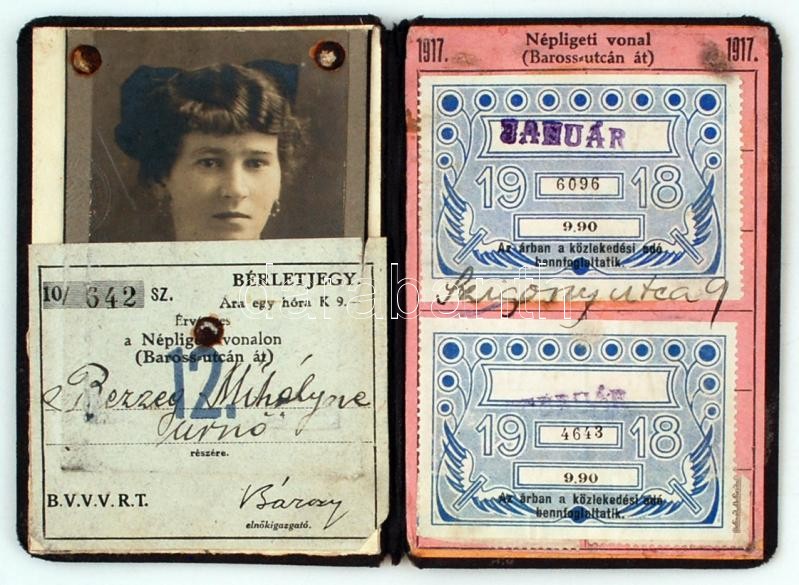 BÉRLETJEGY.
10/ 642 SZ.
Ára egy hóra K 9.-
a Népligeti vonalon
(Baross-utcán át)
12.
Mihályné
részére.
B.V.V.V.R.T.
elnökigazgató.
1917. Népligeti vonal 1917.
(Baross-utcán át)
JANUÁR
19 6096 18
9.90
Az árban a közlekedési adó
bennfoglaltatik.
Szigony utca 9
19 4643 18
9.90
Az árban a közlekedési adó
bennfoglaltatik.
darabanth